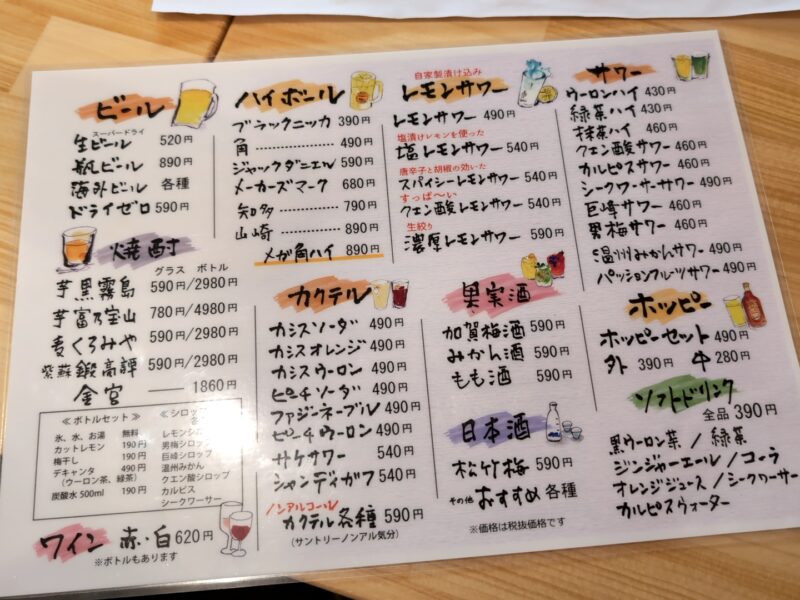 ビール
スーパードライ
生ビール 520円
瓶ビール 890円
海外ビール 各種
ドライゼロ 590円
焼酎
グラス ボトル
芋黒霧島 590円/2980円
芋富乃宝山 780円/4980円
麦くろみや 590円/2980円
紫蘇鍛高譚 590円/2980円
金宮 1860円
≪ボトルセット≫
氷、水、お湯 無料
カットレモン 190円
梅干し 190円
デキャンタ 490円
(ウーロン茶、緑茶)
炭酸水 500ml 190円
≪シロップ
レモンシロ
男梅シロップ
巨峰シロップ
温州みかん
クエン酸シロップ
カルピス
シークワーサー
ワイン 赤・白 620円
※ボトルもあります
ハイボール
ブラックニッカ 390円
角 490円
ジャックダニエル 590円
メーカーズマーク 680円
知多 790円
山崎 890円
メガ角ハイ 890円
カクテル
カシスソーダ 490円
カシスオレンジ 490円
カシスウーロン 490円
ピーチソーダ 490円
ファジーネーブル 490円
ピーチウーロン 490円
サケサワー 540円
シャンディガフ 540円
ノンアルコール
カクテル各種 590円
(サントリーノンアル気分)
自家製漬け込み
レモンサワー
レモンサワー 490円
塩漬けレモンを使った
塩レモンサワー 540円
唐辛子と胡椒の効いた
スパイシーレモンサワー 540円
すっぱ〜い
クエン酸レモンサワー 540円
生絞り
濃厚レモンサワー 590円
果実酒
加賀梅酒 590円
みかん酒 590円
もも酒 590円
日本酒
松竹梅 590円
その他 おすすめ 各種
※価格は税抜価格です
サワー
ウーロンハイ 430円
緑茶ハイ 430円
抹茶ハイ 460円
クエン酸サワー 460円
カルピスサワー 460円
シークワーサーサワー 490円
巨峰サワー 460円
男梅サワー 460円
温州みかんサワー 490円
パッションフルーツサワー 490円
ホッピー
ホッピーセット 490円
外 390円 中 280円
ソフトドリンク
全品 390円
黒ウーロン茶 / 緑茶
ジンジャーエール / コーラ
オレンジジュース / シークワーサー
カルピスウォーター